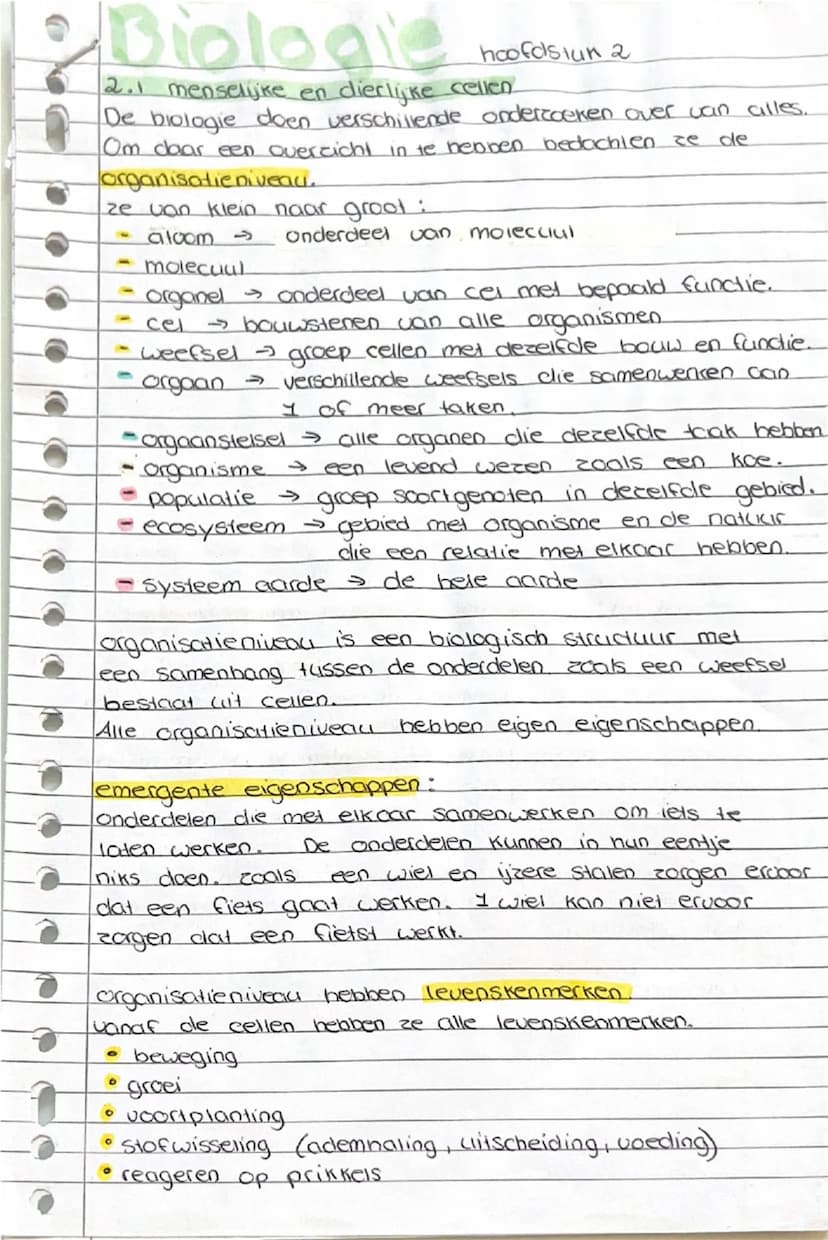 Biologie hoofdstuk 2
2.1 menselijke en dierlijke cellen
De biologie doen verschillende onderzoeken over van alles.
Om daar een overzicht in te hebben bedachten ze de
organisatieniveau.
ze van klein naar groot :
- atoom → onderdeel van molecuul
- molecuul
- organel → onderdeel van cel met bepaald functie.
- cel → bouwstenen van alle organismen
- weefsel → groep cellen met dezelfde bouw en functie.
- orgaan → verschillende weefsels die samenwerken aan
1 of meer taken.
- orgaanstelsel → alle organen die dezelfde taak hebben
- organisme → een levend wezen zoals een koe.
- populatie → groep soortgenoten in dezelfde gebied.
- ecosysteem → gebied met organisme en de natuur
die een relatie met elkaar hebben.
- systeem aarde → de hele aarde
organisatieniveau is een biologisch structuur met
een samenhang tussen de onderdelen. zoals een weefsel
bestaat uit cellen.
Alle organisatieniveau hebben eigen eigenschappen.
emergente eigenschappen :
onderdelen die met elkaar samenwerken om iets te
laten werken. De onderdelen kunnen in hun eentje
niks doen. zoals een wiel en ijzere stalen zorgen ervoor
dat een fiets gaat werken. 1 wiel kan niet ervoor
zorgen dat een fietst werkt.
organisatieniveau hebben levenskenmerken.
vanaf de cellen hebben ze alle levenskenmerken.
• beweging
• groei
• voortplanting
• stofwisseling (ademhaling, uitscheiding, voeding)
• reageren op prikkels